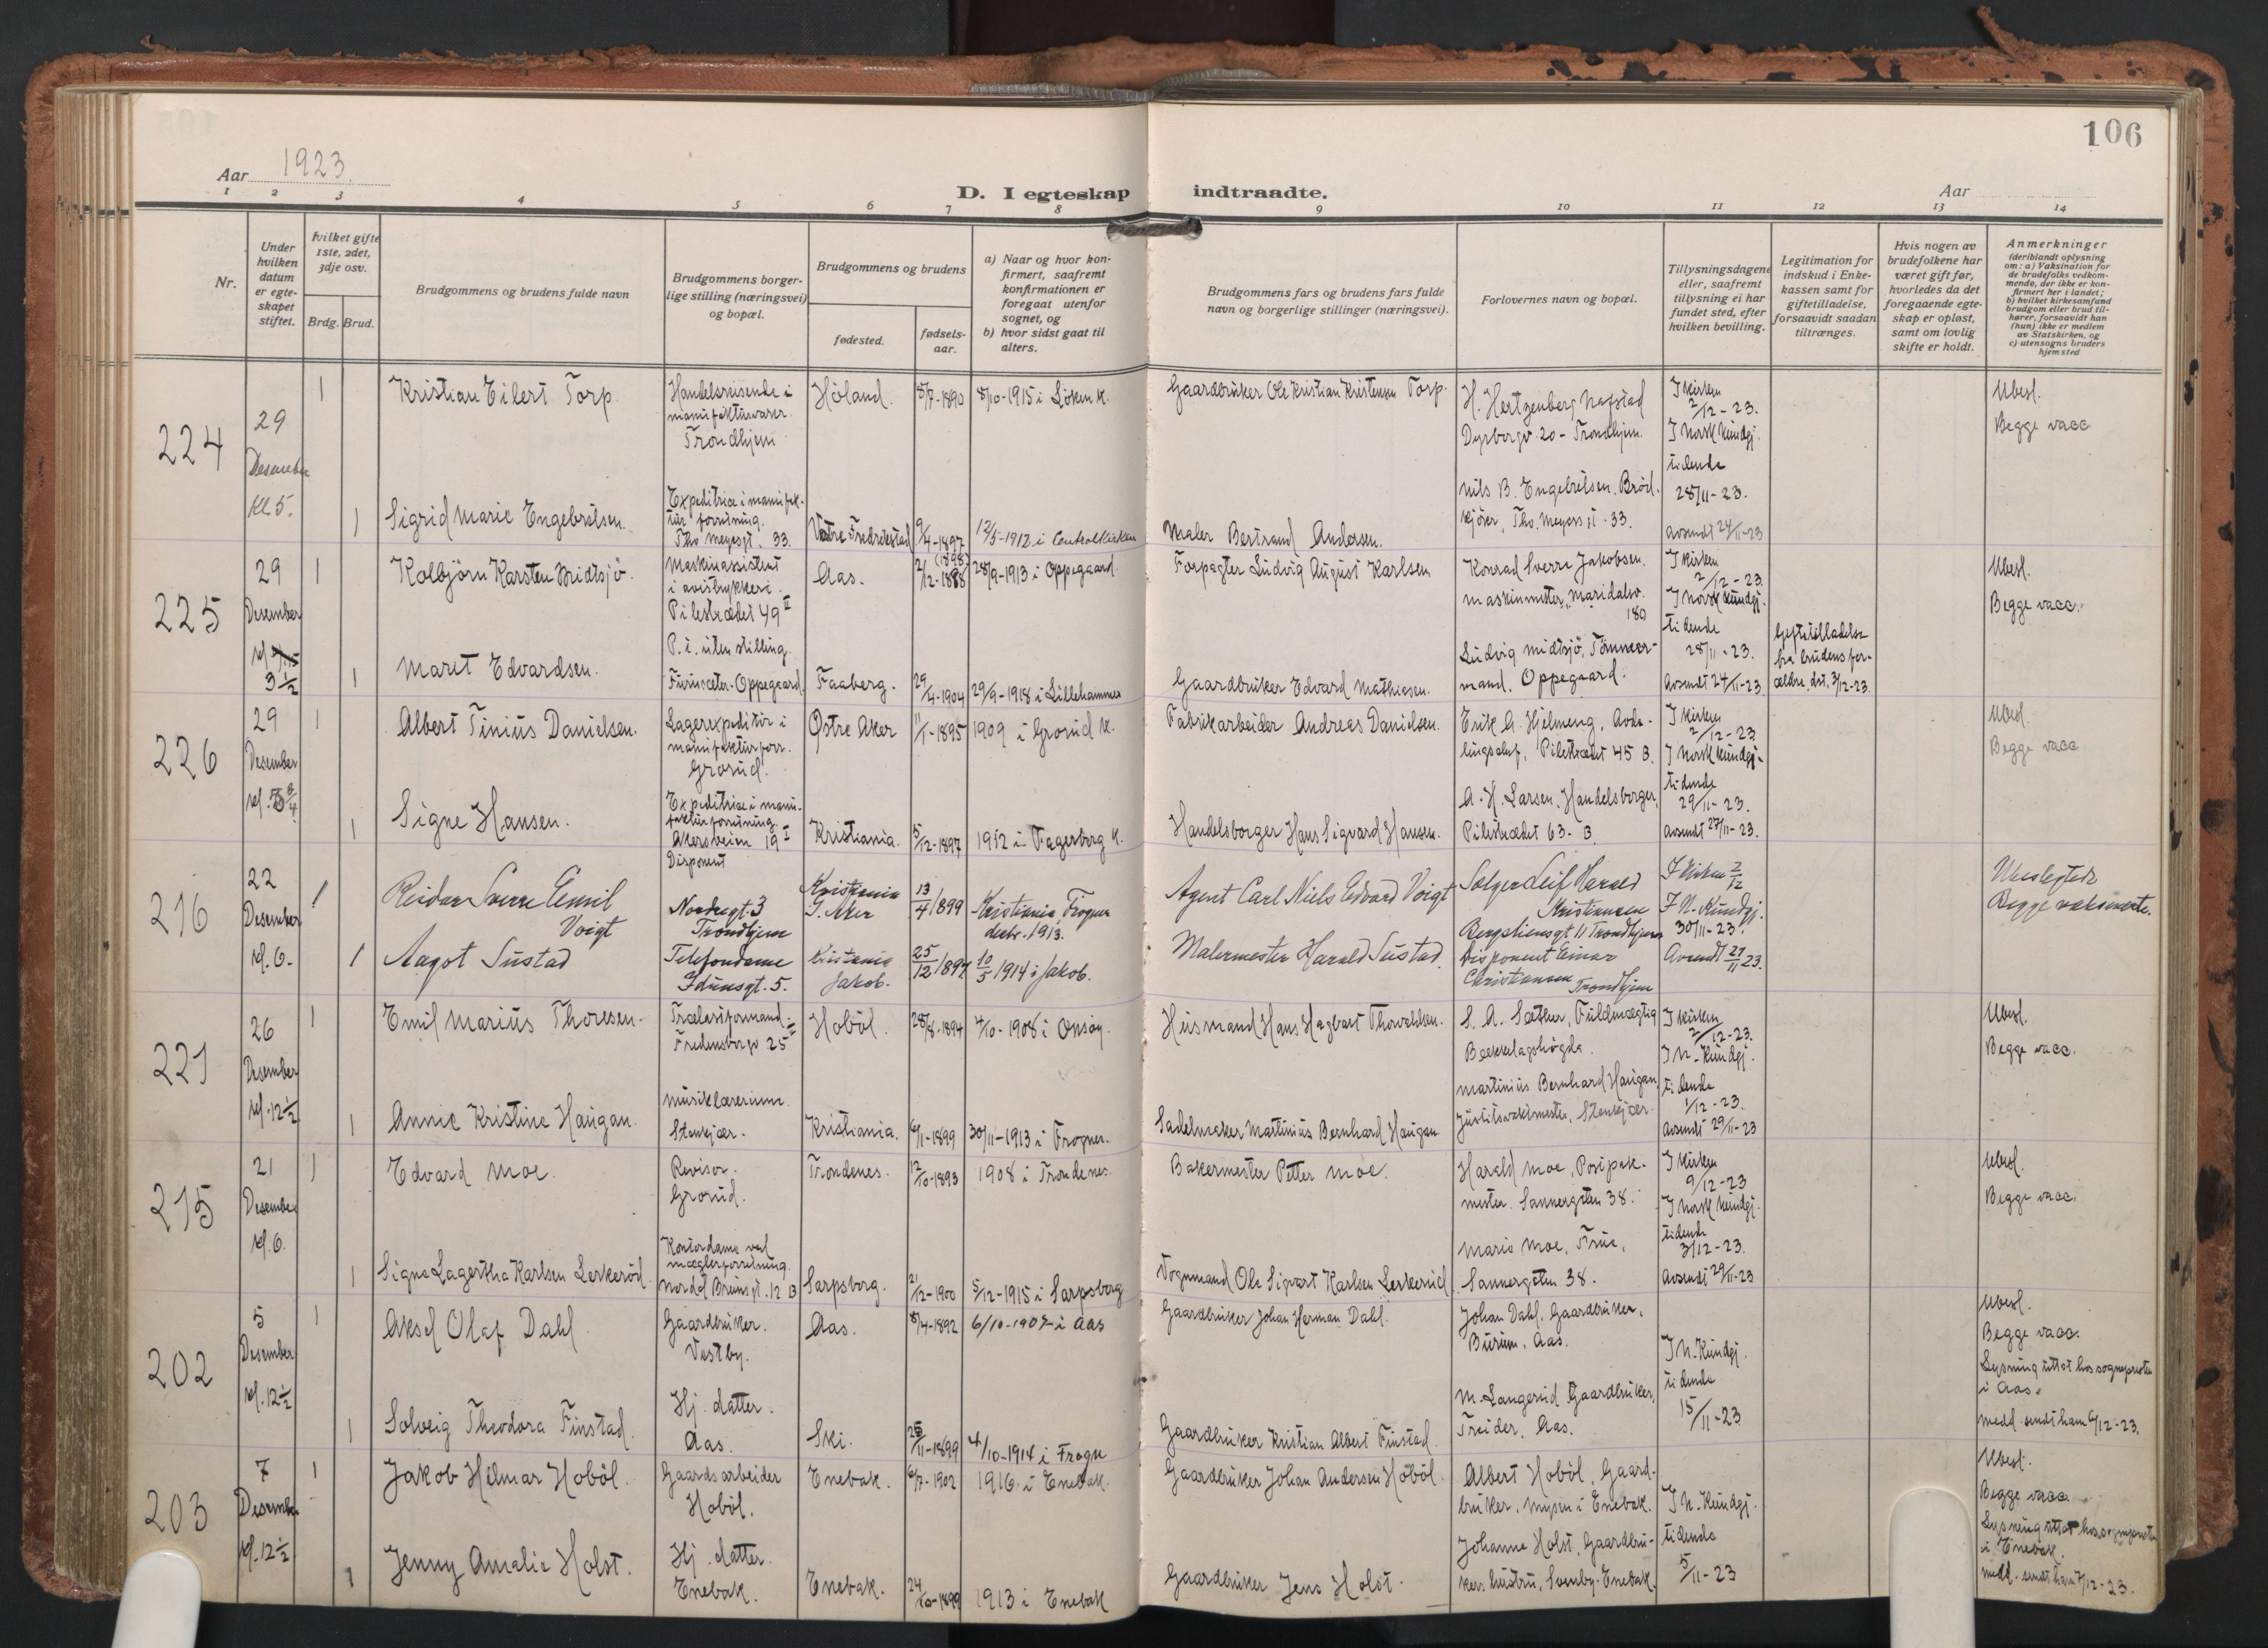 106
Aar 1923.
D. I egteskap indtraadte.
Aar
1 2 3 4 5 6 7 8 9 10 11 12 13 14
Nr.
Under
hvilken
datum
er egte-
skapet
stiftet.
hvilket gifte
1ste, 2det,
3dje osv.
Brdg. Brud.
Brudgommens og brudens fulde navn
Brudgommens borger-
lige stilling (næringsvei)
og bopæl.
Brudgommens og brudens
fødested.
fødsels-
aar.
a) Naar og hvor kon-
firmert, saafremt
konfirmationen er
foregaat utenfor
sognet, og
b) hvor sidst gaat til
alters.
Brudgommens fars og brudens fars fulde
navn og borgerlige stillinger (næringsvei).
Forlovernes navn og bopæl.
Tillysningsdagene
eller, saafremt
tillysning ei har
fundet sted, efter
hvilken bevilling.
Legitimation for
indskud i Enke-
kassen samt for
giftetilladelse,
forsaavidt saadan
tiltrænges.
Hvis nogen av
brudefolkene har
været gift før,
hvorledes da det
foregaaende egte-
skap er opløst,
samt om lovlig
skifte er holdt.
Anmerkninger
(deriblandt oplysning
om: a) Vaksination for
de brudefolks vedkom-
mende, der ikke er kon-
firmert her i landet;
b) hvilket kirkesamfund
brudgom eller brud til-
hører, forsaavidt han
(hun) ikke er medlem
av Statskirken, og
c) utensogns bruders
hjemsted
224
29
Desember
Kl. 5.
1
Kristian Eilert Torp.
Handelsreisende i
manufakturvarer.
Trondhjem.
Høland.
8/7-1890
8/10-1915 i Löken k.
Gaardbruker Ole Kristian Kristensen Torp.
H. Hertzenberg Nafstad
Dyrborgv. 20 - Trondhjem.
I kirken
2/12-23.
I Norsk kundgj.
tidende
28/11-23.
Avsendt 24/11-23
Ubesl.
Begge vacc
1
Sigrid Marie Engebretsen.
Expeditrice i manufak-
tur forretning.
Tho. Meyersgt. 33.
Vestre Fredrikstad
9/4-1897
12/5-1912 i Centralkirken
Maler Bertrand Andersen.
Nils B. Engebretsen. Bröd-
kjörer, Tho. Meyers gt. 33.
225
29
Desember
kl. 3 1/2
1
Kolbjörn Karsten Midtsjö.
Maskinassistent
i avistrykkeri.
Pilestrædet 49 II
Aas.
2/12-1888 (1898)
28/9-1913 i Oppegaard.
Forpagter Ludvig August Karlsen
Konrad Sverre Jakobsen.
maskinmester, Maridalsv.
180
I kirken
2/12-23.
I Norsk kundgj.
tidende
28/11-23.
Avsendt 24/11-23
Giftetilladelse
fra brudens for-
ældre, dat. 3/12-23.
Ubesl.
Begge vacc.
1
Marit Edvardsen.
P. t. uten stilling.
Furusæter-Oppegaard.
Faaberg.
29/4-1904
29/9-1918 i Lillehammer
Gaardbruker Edvard Mathiesen.
Ludvig Midtsjö, Tömmer-
mand. Oppegaard.
226
29
Desember
kl. 5 3/4
1
Albert Tinius Danielsen.
Lagerexpeditör i
manufakturforr.
Grorud.
Østre Aker
11/1-1895
1909 i Grorud k.
Fabrikarbeider Andreas Danielsen.
Erik A. Hjelmeng, Avde-
lingschef, Pilestrædet 45 B.
I kirken
2/12-23
I Norsk kundgj-
tidende
29/11-23.
Avsendt 27/11-23.
Ubesl.
Begge vacc
1
Signe Hansen.
Expeditrice i manu-
faktur forretning.
Akersveien 19 I
Kristiania.
5/12-1897
1912 i Fagerborg k.
Handelsborger Hans Sigvard Hansen.
A. H. Larsen. Handelsborger,
Pilestrædet 63-B
216
22
Desember
kl. 6.
1
Reidar Sverre Emil
Voigt
Disponent
Nordregt. 3
Trondhjem
Kristiania
G. Aker
13/4 1899
Kristiania Frogner
decbr. 1913.
Agent Carl Niels Edvard Voigt
Sælger Leif Harald
Kristiansen
Bergsliensgt 11 Trondhjem
I kirken 2/12
I N. Kundgj.
30/11-23.
Avsendt 27/11 23.
Ubeslegtede
Begge vaksinerte.
1
Aagot Sustad
Telefondame
Idunsgt. 5.
Kristiania
Jakob.
25/12 1897
10/5 1914 i Jakob.
Malermester Harald Sustad.
Disponent Einar
Christiansen Trondhjem
221
26
Desember
kl. 12 1/2
1
Emil Marius Thoresen.
Trælastformand.
Fredensborgv 25 II
Hobøl.
28/8-1894
4/10-1908 i Onsøy.
Husmand Hans Hagbart Thorvaldsen.
S. A. Sæther, Fuldmægtig
Bækkelagshögda.
I kirken
2/12-23.
I N. Kundgj.
tidende
1/12-23.
Avsendt 29/11-23
Ubesl.
Begge vacc.
1
Annie Kristine Haugan.
Musiklærerinne.
Stenkjær.
Kristiania.
6/1-1899
30/11-1913 i Frogner.
Sadelmaker Martinius Bernhard Haugan.
Martinius Bernhard Haugan
Justitsvaktmester, Stenkjær.
215
21
Desember
kl. 6.
1
Edvard Moe.
Revisor.
Grorud.
Trondenes.
12/10-1893
1908 i Trondenes.
Bakermester Petter Moe.
Harald Moe, Postpak-
mester. Sannergaten 38.
I kirken
9/12-23
I Norsk kundgj.
tidende
3/12-23.
Avsendt 29/11-23
Ubesl.
Begge vacc.
1
Signe Lagertha Karlsen Lerkeröd.
Kontordame ved
mæglerforretning.
Nordal Brunsgt. 12 B
Sarpsborg.
21/12-1900
5/12-1915 i Sarpsborg
Vognmand Ole Sigvart Karlsen Lerkerud
Marie Moe, Frue,
Sannergaten 38.
202
5
Desember
kl. 12 1/2
1
Aksel Olaf Dahl.
Gaardbruker.
Vestby.
Aas.
8/4-1892
6/10-1907 i Aas
Gaardbruker Johan Herman Dahl.
Johan Dahl, Gaardbruker,
Burum, Aas.
I N. Kundgj.
tidende
15/11-23
Ubesl.
Begge vacc.
Lysning uttat hos sogneprester
i Aas.
medd. sendt ham 6/12-23.
1
Solveig Theodora Finstad.
Hj. datter.
Aas.
Ski.
25/11-1899
4/10-1914 i Frogn
Gaardbruker Kristian Albert Finstad.
M. Langerud Gaardbruker,
Treider, Aas.
203
7
Desember
kl. 12 1/2
1
Jakob Hilmar Hoböl.
Gaardsarbeider
Hoböl.
Enebak.
6/7-1902
1916 i Enebak.
Gaardbruker Johan Andersen Hoböl.
Albert Hoböl, Gaard-
bruker, Mysen i Enebak.
I N. Kundgj.
tidende
5/11-23
Ubesl.
Begge vacc.
Lysning uttat hos sogneprester
i Enebak.
medd. sendt ham 7/12-23.
1
Jenny Amalie Holst.
Hj. datter.
Enebak.
Enebak.
24/10-1899
1913 i Enebak
Gaardbruker Jens Holst.
Johanne Holst, Gaardbru-
kers hustru, Sværdby. Enebak.